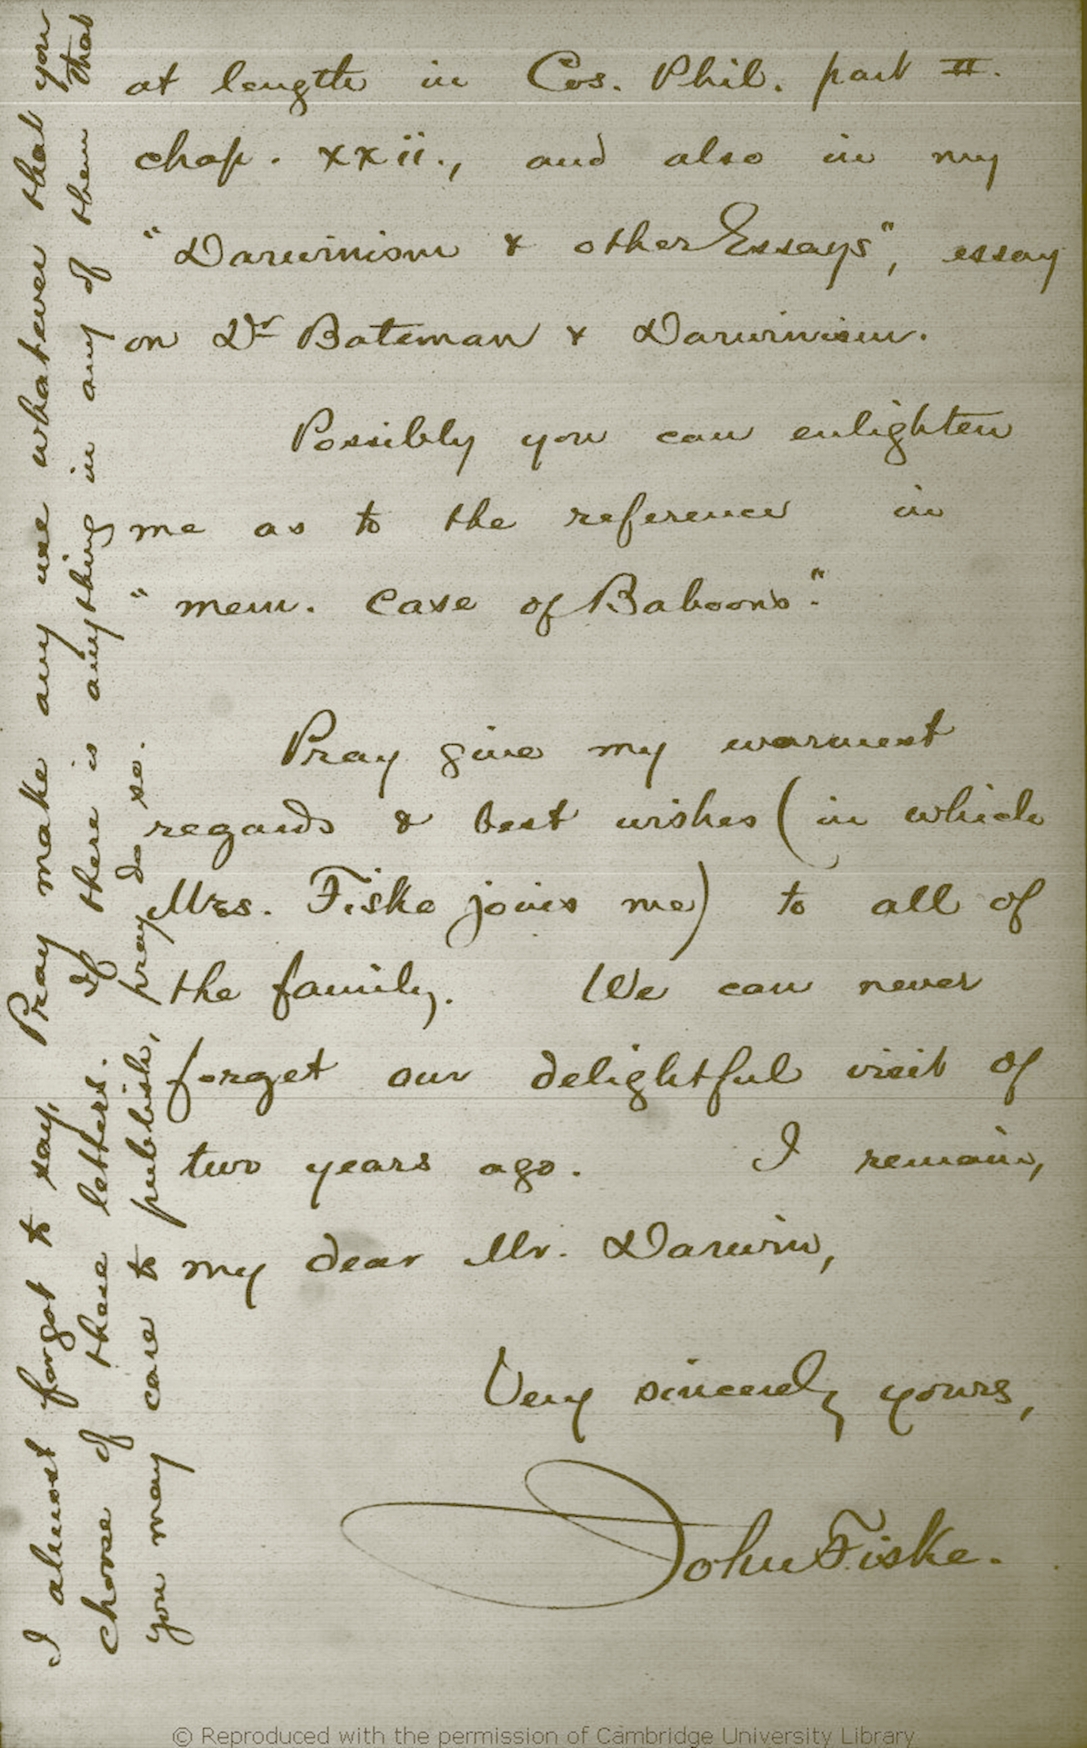 at length in Cos. Phil. part II.
chap. xxii., and also in my
"Darwinism & other Essays", essay
on Dr Bateman & Darwinism.
Possibly you can enlighten
me as to the reference in
"mem. Case of Baboons".
Pray give my warmest
regards & best wishes (in which
Mrs. Fiske joins me) to all of
the family. We can never
forget our delightful visit of
two years ago. I remain,
my dear Mr. Darwin,
Very sincerely yours,
John Fiske.
I almost forgot to say, Pray make any use whatever that you
choose of these letters. If there is anything in any of them that
you may care to publish, pray do so.
© Reproduced with the permission of Cambridge University Library